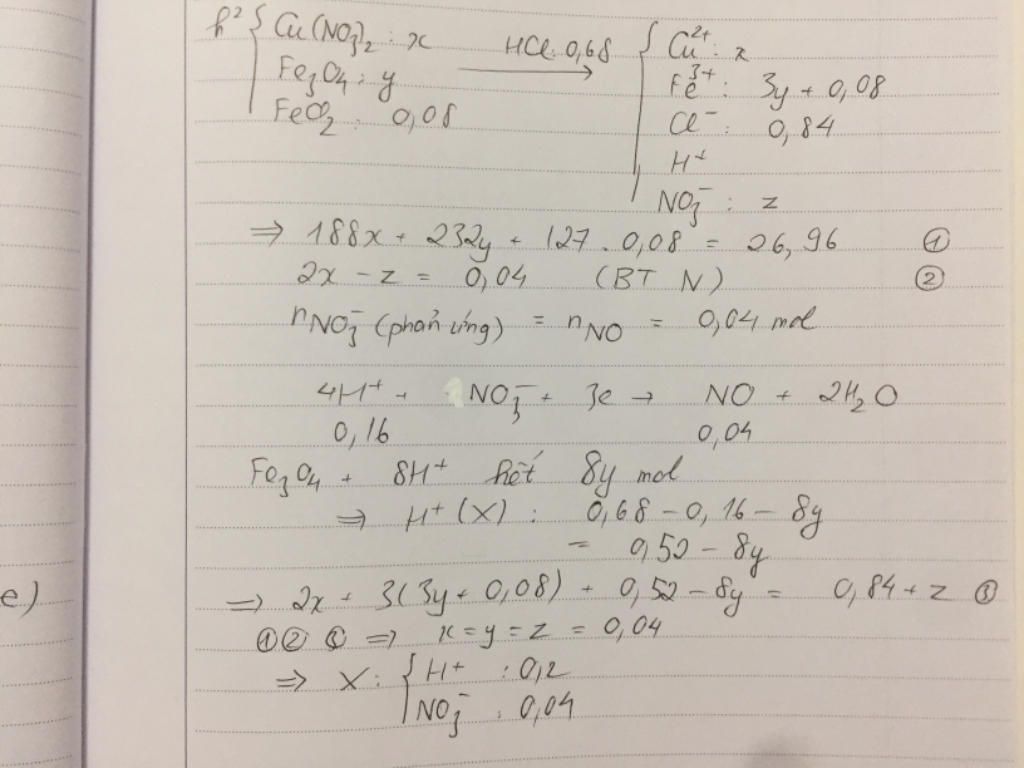 h² { Cu(NO₃)₂ : x
Fe₃O₄ : y
FeCl₂ : 0,08
HCl: 0,68 →
{ Cu²⁺ : x
Fe³⁺ : 3y + 0,08
Cl⁻ : 0,84
H⁺
NO₃⁻ : z
⇒ 188x + 232y + 127 . 0,08 = 26,96 ①
2x - z = 0,04 (BT N) ②
nNO₃⁻ (phản ứng) = nNO = 0,04 mol
4H⁺ + NO₃⁻ + 3e → NO + 2H₂O
0,16 0,04
Fe₃O₄ + 8H⁺ hết 8y mol
⇒ H⁺ (X) : 0,68 - 0,16 - 8y
= 0,52 - 8y
e)
⇒ 2x + 3(3y + 0,08) + 0,52 - 8y = 0,84 + z ③
① ② ③ ⇒ x = y = z = 0,04
⇒ X : { H⁺ : 0,2
NO₃⁻ : 0,04